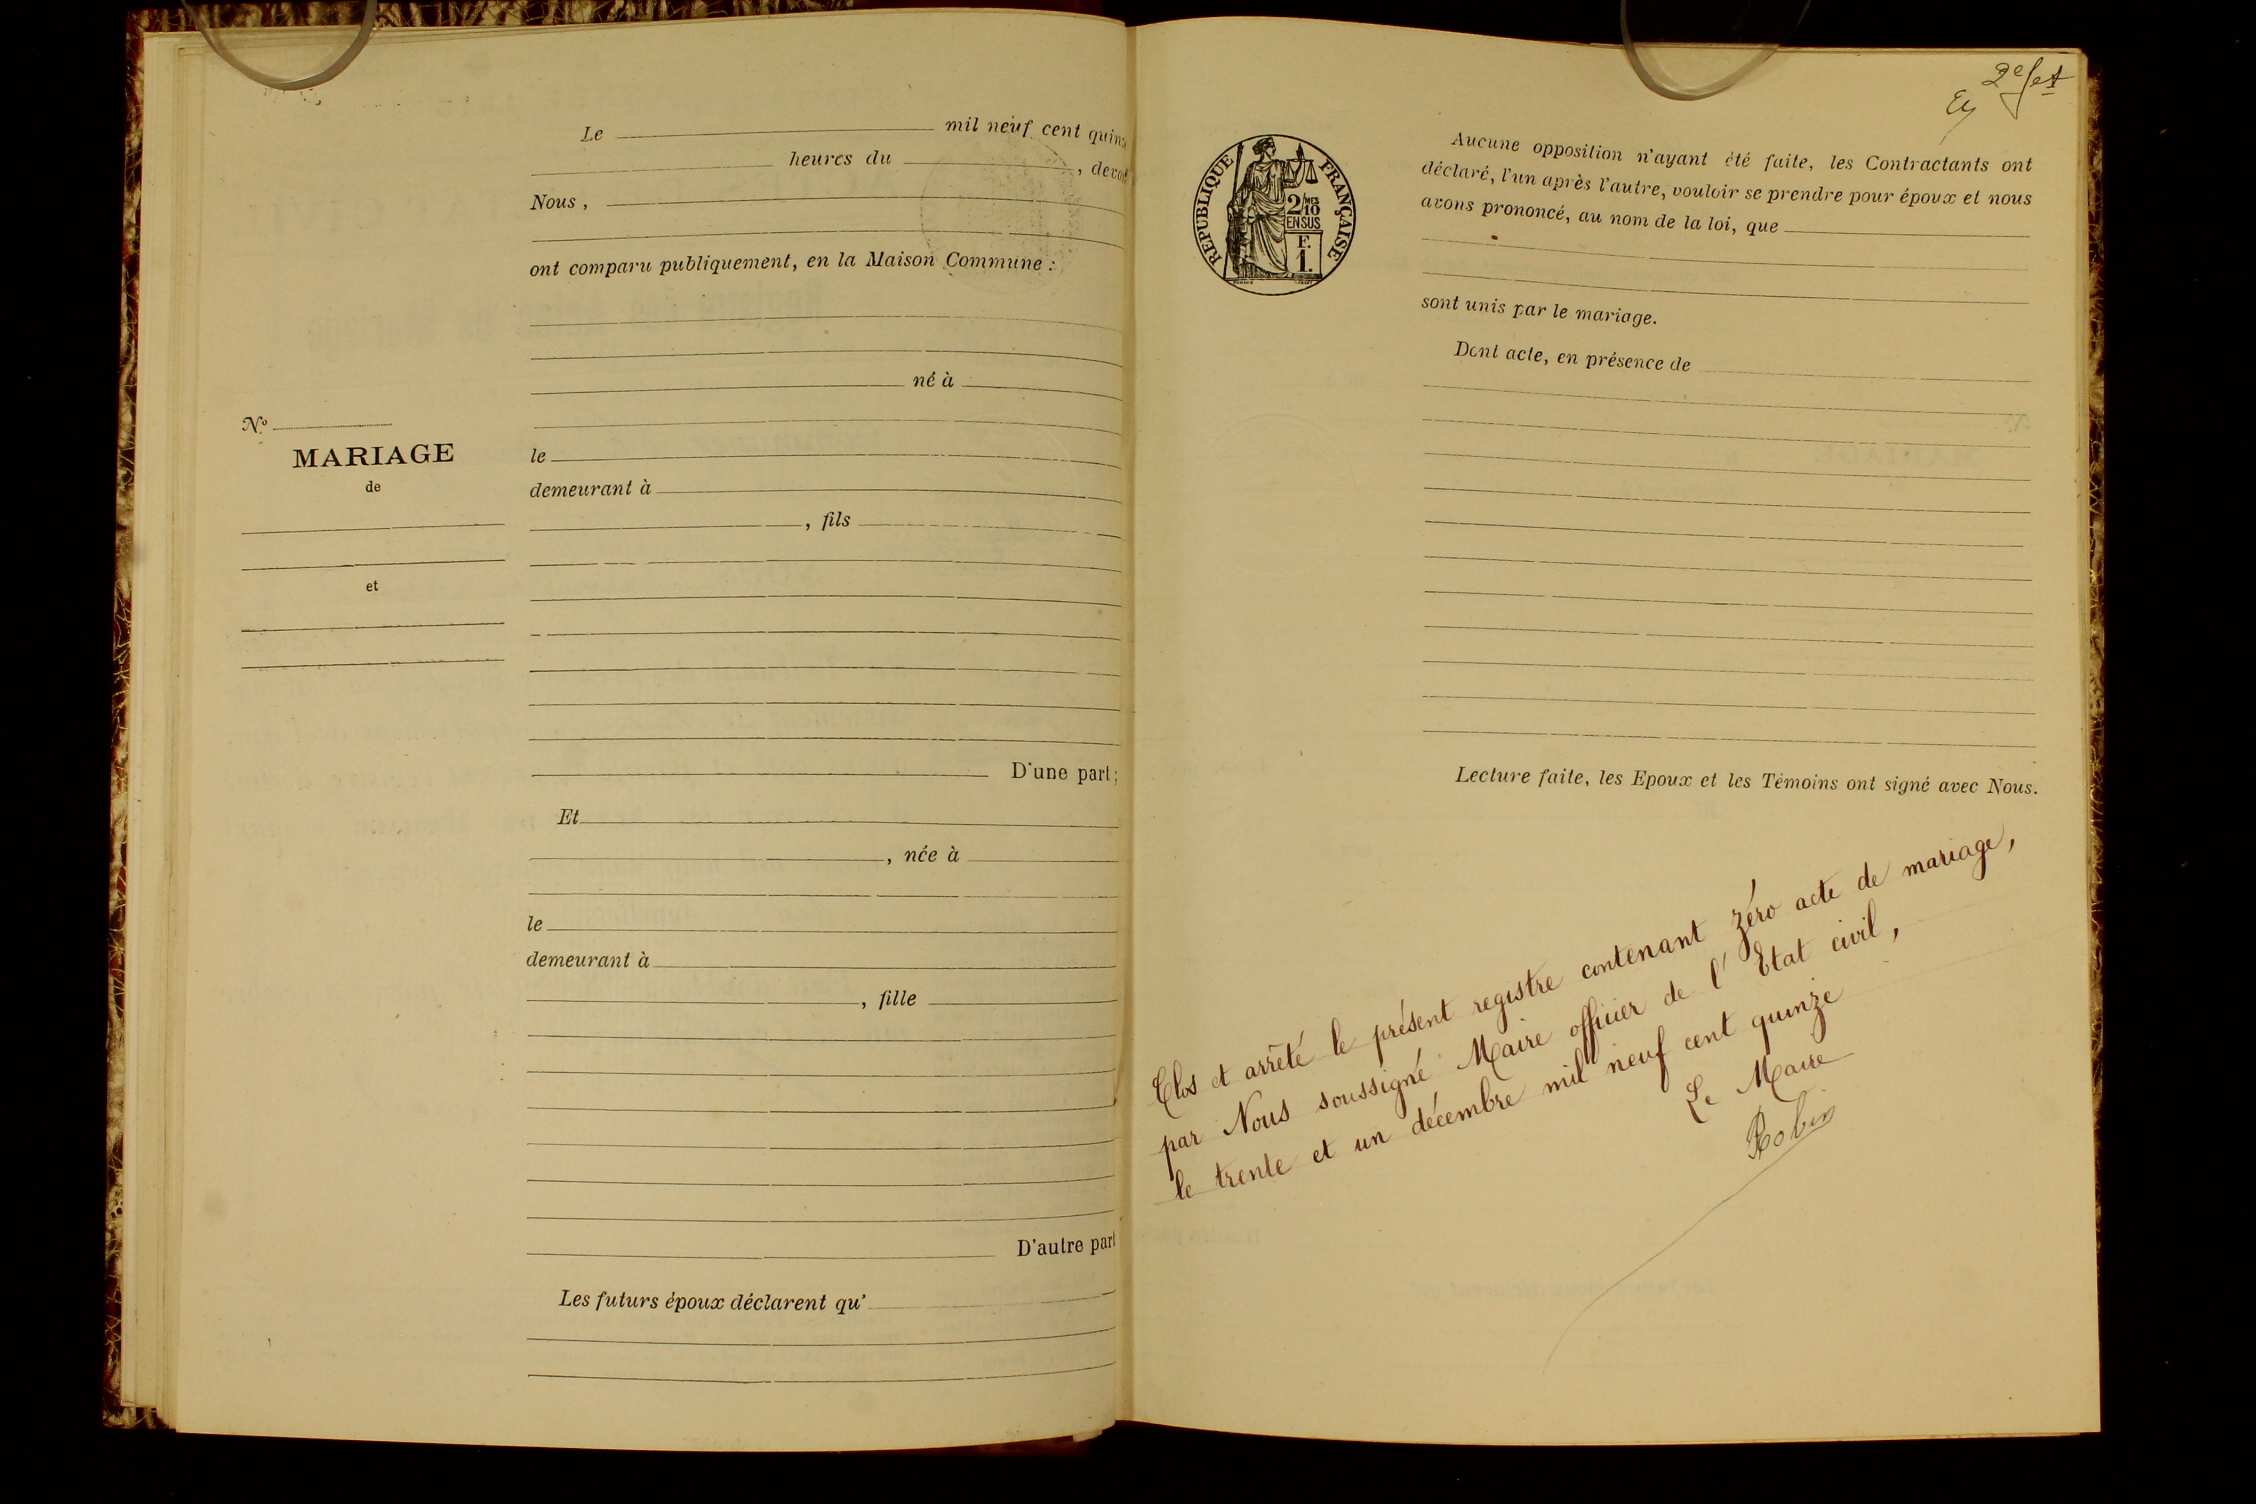 Le mil neuf cent quin
heures du , devo
Nous ,
ont comparu publiquement, en la Maison Commune :
né à
le
demeurant à
, fils
D'une part ;
Et
, née à
le
demeurant à
, fille
D'autre part
Les futurs époux déclarent qu'
Nº
MARIAGE
de
et
2e fet
RÉPUBLIQUE FRANÇAISE
2/MES
10
EN SUS
F.
1.
Aucune opposition n'ayant été faite, les Contractants ont
déclaré, l'un après l'autre, vouloir se prendre pour époux et nous
avons prononcé, au nom de la loi, que
sont unis par le mariage.
Dont acte, en présence de
Lecture faite, les Epoux et les Témoins ont signé avec Nous.
Clos et arrêté le présent registre contenant zéro acte de mariage,
par Nous soussigné Maire officier de l'Etat civil,
le trente et un décembre mil neuf cent quinze
Le Maire
Robin